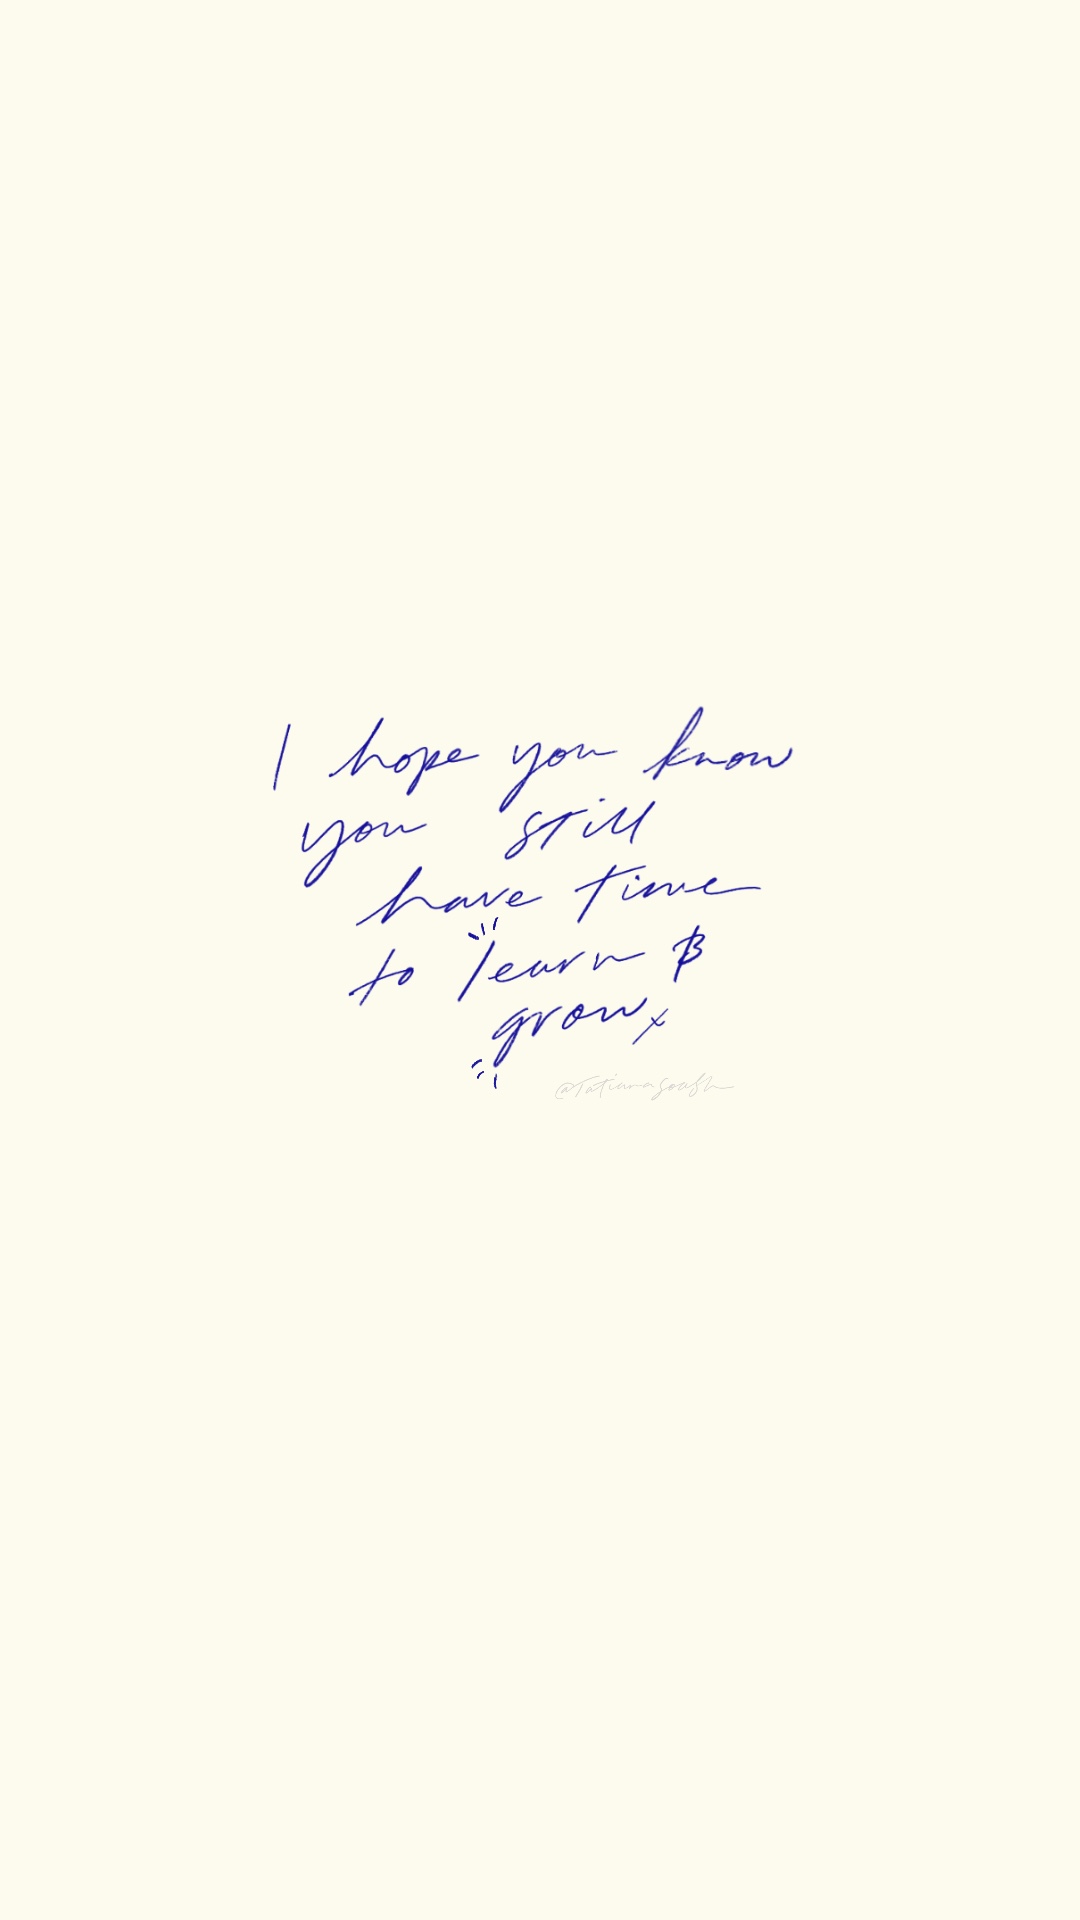 I hope you know
you still
have time
to learn &
grow x